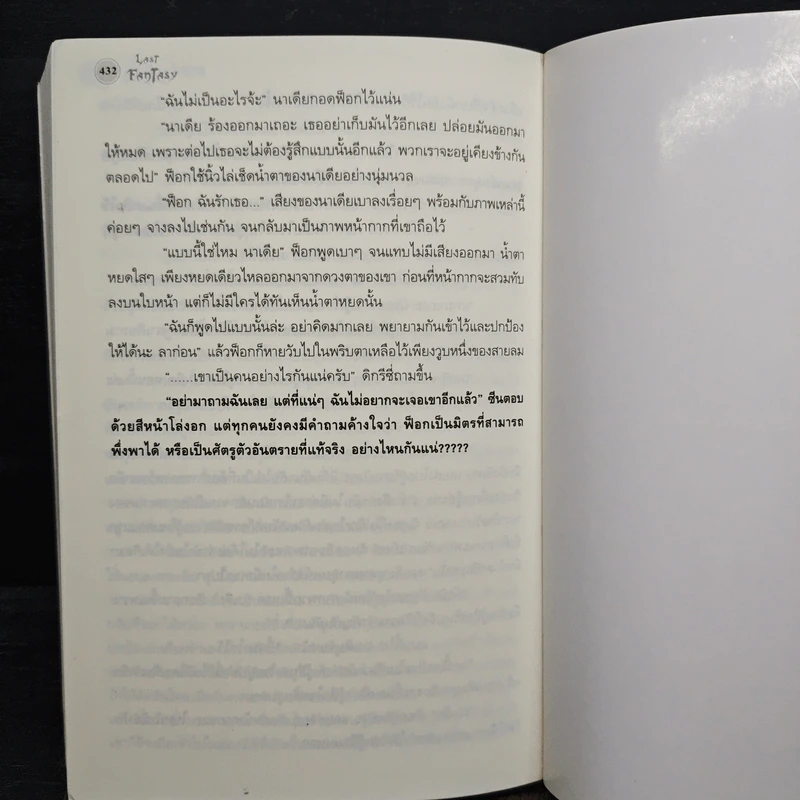 432
LAST
FANTASY
"ฉันไม่เป็นอะไรจ้ะ" นาเดียกอดฟ็อกไว้แน่น
"นาเดีย ร้องออกมาเถอะ เธออย่าเก็บมันไว้อีกเลย ปล่อยมันออกมา
ให้หมด เพราะต่อไปเธอจะไม่ต้องรู้สึกแบบนั้นอีกแล้ว พวกเราจะอยู่เคียงข้างกัน
ตลอดไป" ฟ็อกใช้นิ้วไล่เช็ดน้ำตาของนาเดียอย่างนุ่มนวล
"ฟ็อก ฉันรักเธอ..." เสียงของนาเดียเบาลงเรื่อยๆ พร้อมกับภาพเหล่านี้
ค่อยๆ จางลงไปเช่นกัน จนกลับมาเป็นภาพหน้ากากที่เขาถือไว้
"แบบนี้ใช่ไหม นาเดีย" ฟ็อกพูดเบาๆ จนแทบไม่มีเสียงออกมา น้ำตา
หยดใสๆ เพียงหยดเดียวไหลออกมาจากดวงตาของเขา ก่อนที่หน้ากากจะสวมทับ
ลงบนใบหน้า แต่ก็ไม่มีใครได้ทันเห็นน้ำตาหยดนั้น
"ฉันก็พูดไปแบบนั้นล่ะ อย่าคิดมากเลย พยายามกันเข้าไว้และปกป้อง
ให้ได้นะ ลาก่อน" แล้วฟ็อกก็หายวับไปในพริบตาเหลือไว้เพียงวูบหนึ่งของสายลม
"......เขาเป็นคนอย่างไรกันแน่ครับ" ดิกรีซี่ถามขึ้น
"อย่ามาถามฉันเลย แต่ที่แน่ๆ ฉันไม่อยากจะเจอเขาอีกแล้ว" ซีนตอบ
ด้วยสีหน้าโล่งอก แต่ทุกคนยังคงมีคำถามค้างใจว่า ฟ็อกเป็นมิตรที่สามารถ
พึ่งพาได้ หรือเป็นศัตรูตัวอันตรายที่แท้จริง อย่างไหนกันแน่?????